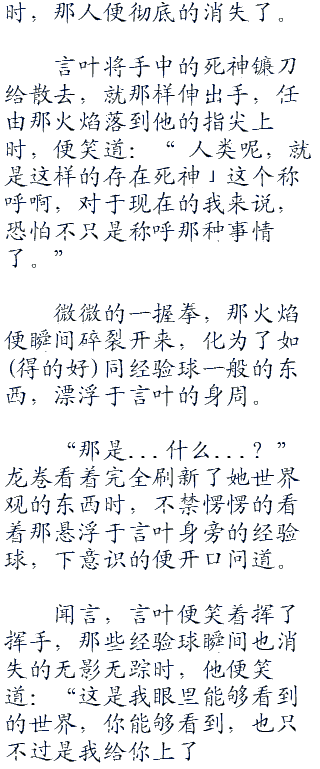 时，那人便彻底的消失了。
言叶将手中的死神镰刀
给散去，就那样伸出手，任
由那火焰落到他的指尖上
时，便笑道：“ 人类呢，就
是这样的存在死神」这个称
呼啊，对于现在的我来说，
恐怕不只是称呼那种事情
了。”
微微的一握拳，那火焰
便瞬间碎裂开来，化为了如
(得的好)同经验球一般的东
西，漂浮于言叶的身周。
“那是...什么...？”
龙卷看着完全刷新了她世界
观的东西时，不禁愣愣的看
着那悬浮于言叶身旁的经验
球，下意识的便开口问道。
闻言，言叶便笑着挥了
挥手，那些经验球瞬间也消
失的无影无踪时，他便笑
道：“这是我眼里能够看到
的世界，你能够看到，也只
不过是我给你上了